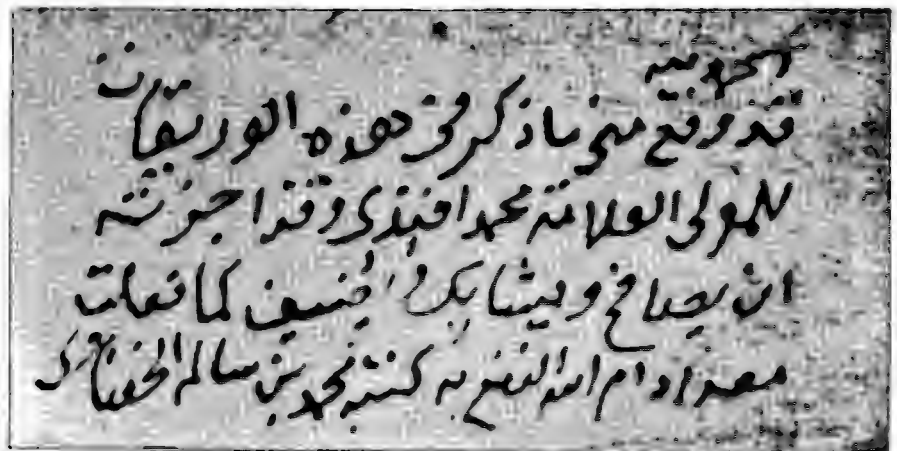 الحمد لله
قد وقع مني ما ذكر في هذه الوريقات
للمولى العلامة محمد افندي وقد اجزته
ان يصافح ويشابك و يضيف كما فعلت
معه ادام الله النفع به كتبه محمد بن سالم الحفناوي